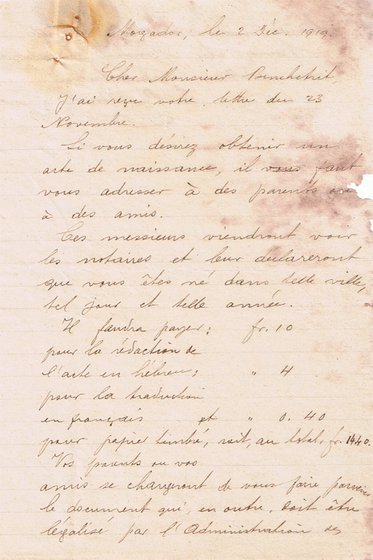 Mogador, le 2 Déc. 1919.
Cher Monsieur Benchetrit
J'ai reçu votre lettre du 23
Novembre.
Si vous désirez obtenir un
acte de naissance, il vous faut
vous adresser à des parents ou
à des amis.
Ces messieurs viendront voir
les notaires et leur déclareront
que vous êtes né dans telle ville,
tel jour et telle année.
Il faudra payer; fr. 10
pour la rédaction de
l'acte en hébreu; " 4
pour la traduction
en français et " 0. 40
pour papier timbré, soit, au total, fr. 14.40.
Vos parents ou vos
amis se chargeront de vous faire parvenir
le document qui, en outre, doit être
légalisé par l'Administration des